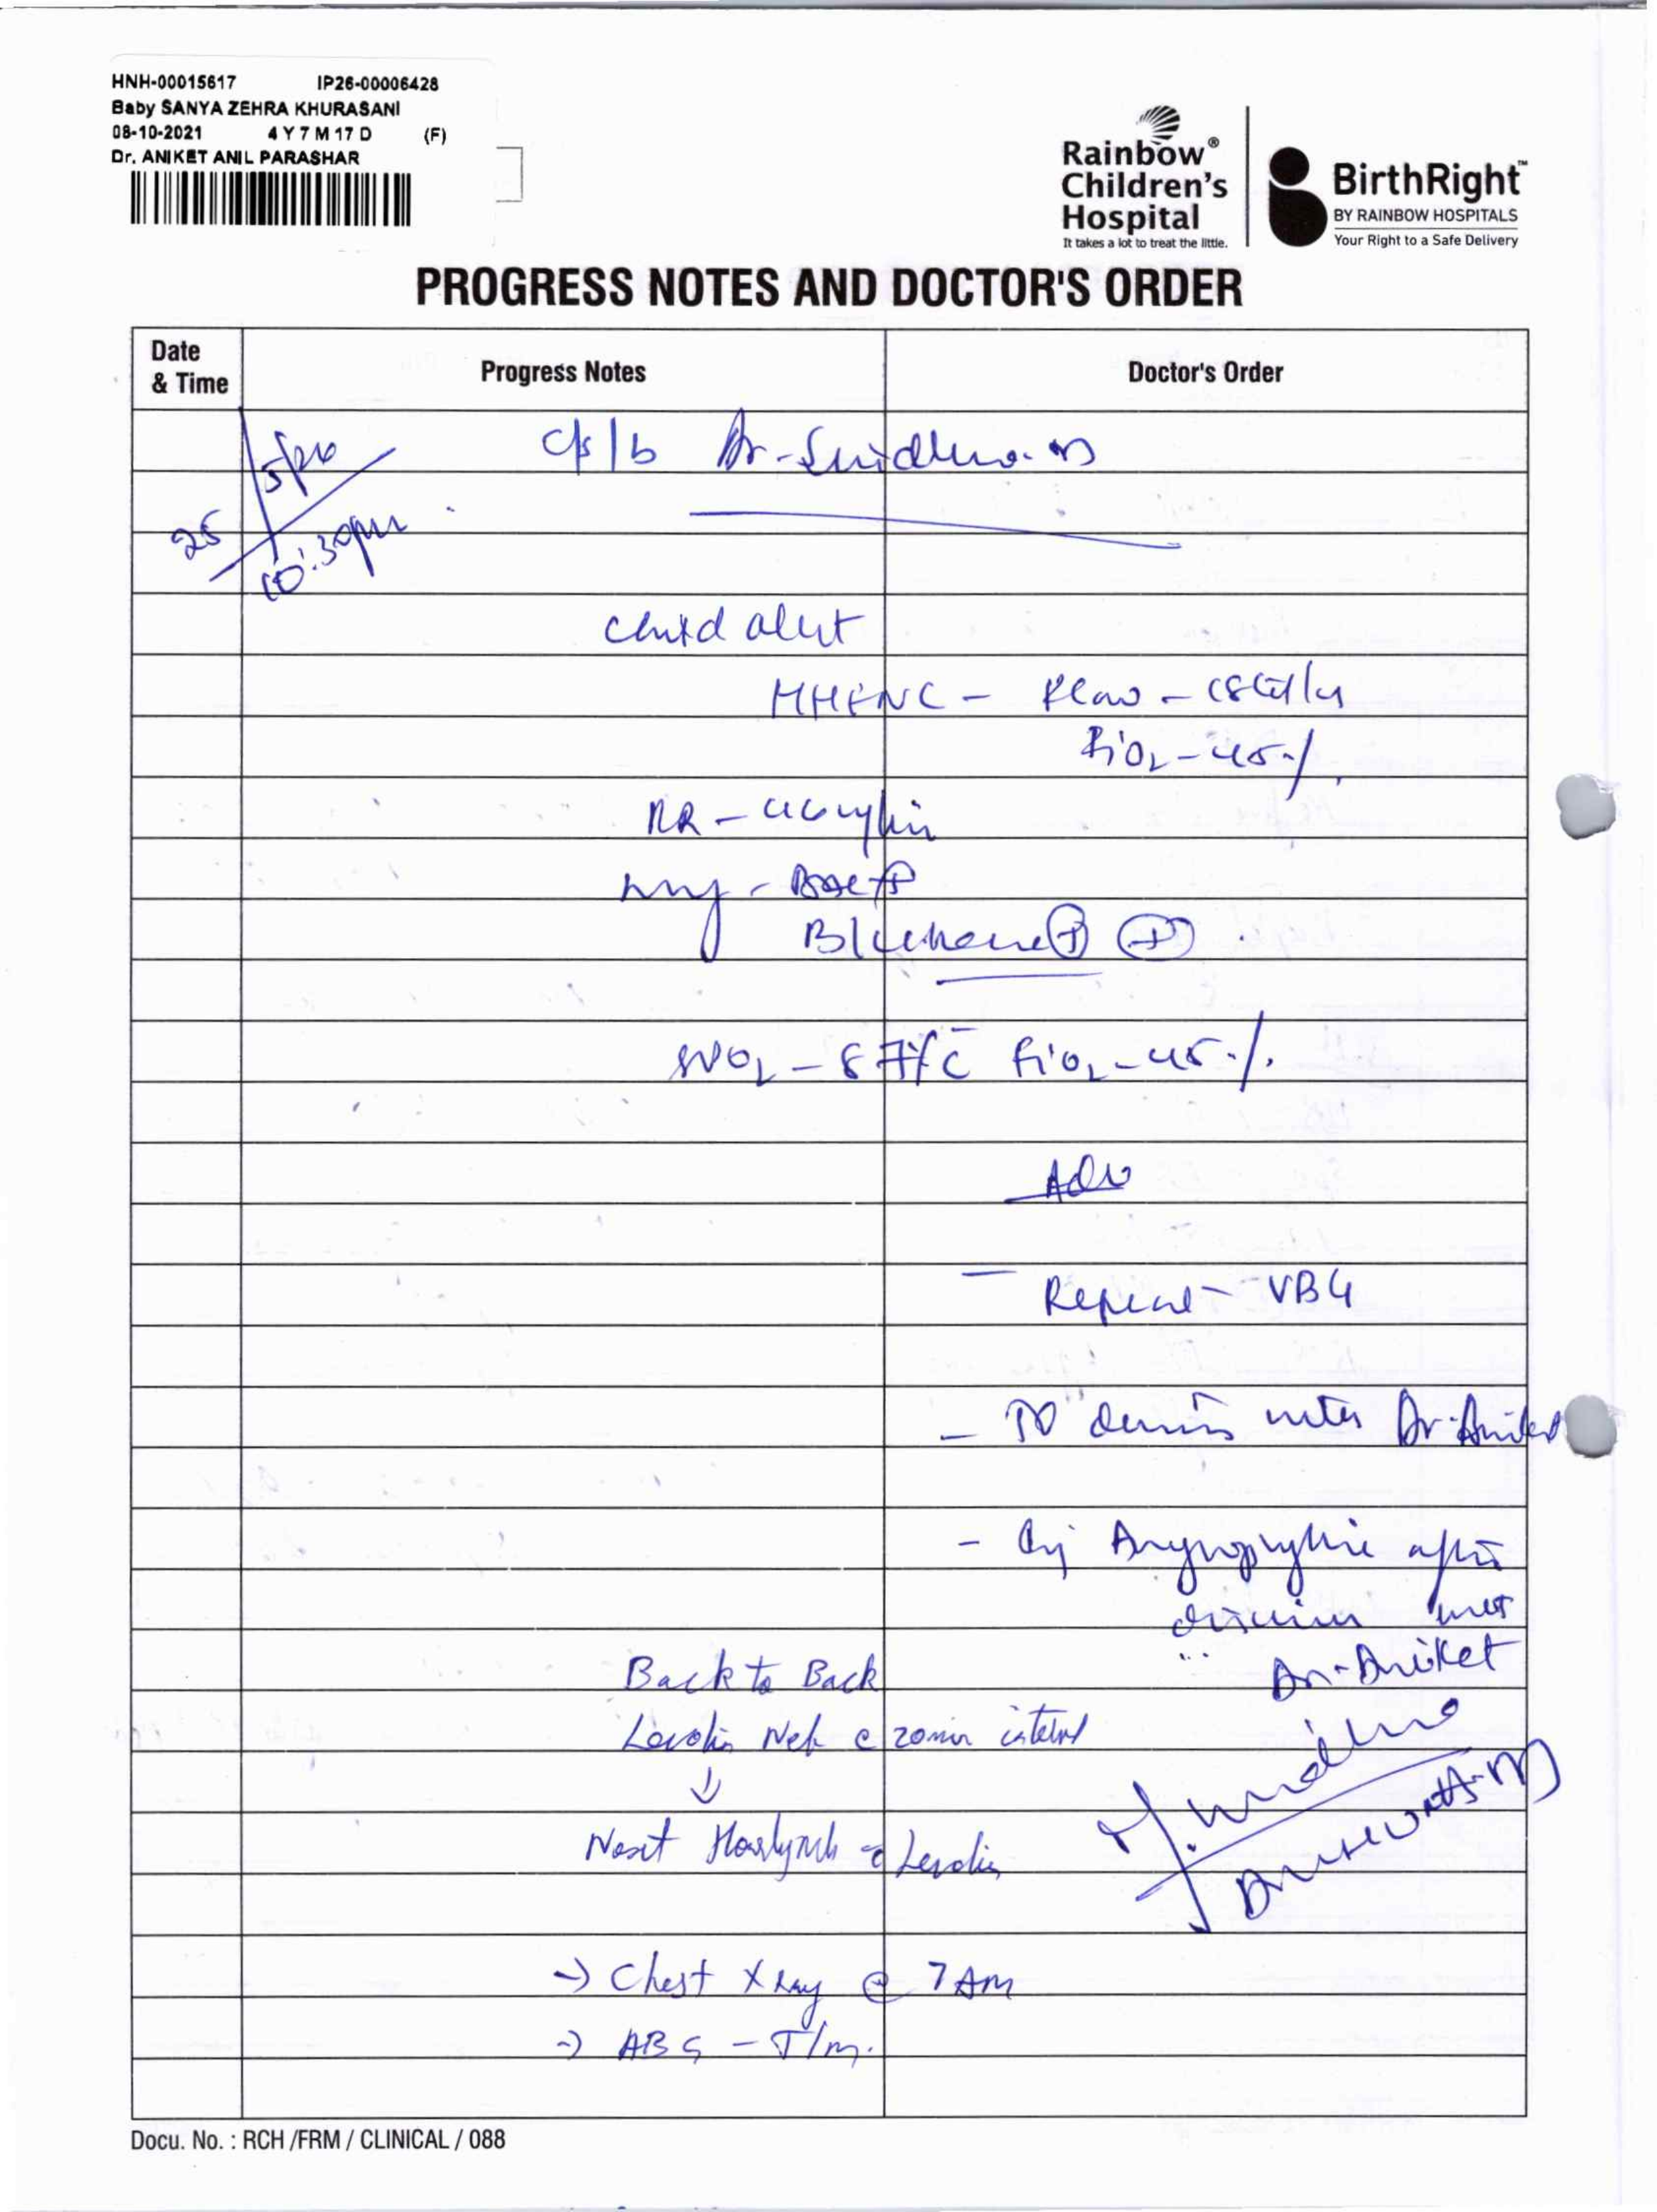 HNH-00015617 IP26-00006428
Baby SANYA ZEHRA KHURASANI
08-10-2021 4 Y 7 M 17 D (F)
Dr. ANIKET ANIL PARASHAR
Rainbow®
Children's
Hospital
It takes a lot to treat the little.
BirthRight™
BY RAINBOW HOSPITALS
Your Right to a Safe Delivery
PROGRESS NOTES AND DOCTOR'S ORDER
Date & Time
Progress Notes
Doctor's Order
25/5/26
10:30pm
C/s/b Dr.
child alert
HHFNC - Flow -
FiO2 - 45%.
RR -
lung - BAE +
B/L +
- 87% c̄ FiO2 - 45%.
Adv
- Repeat VBG
- To with Dr. Aniket
- Inj after
with
Dr. Aniket
Back to Back
Levolin Neb @ 20min interval
⇓
Next Hourly Neb c̄ Levolin
→ Chest Xray @ 7 AM
→ ABG - T/m.
Docu. No. : RCH /FRM / CLINICAL / 088